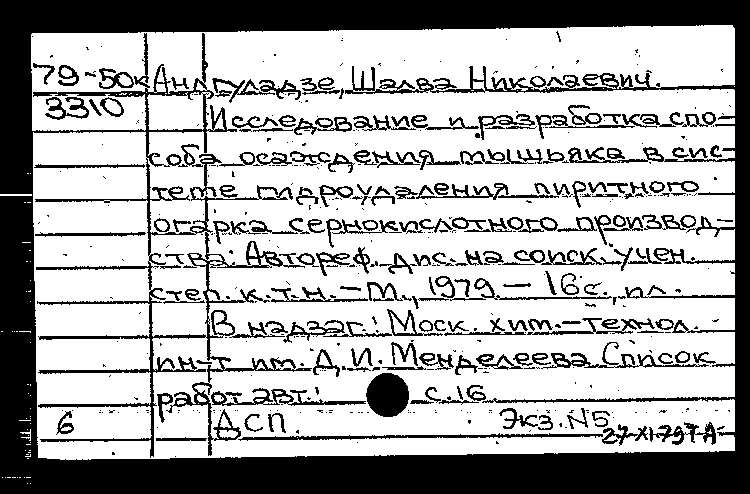 79-50к Андгуладзе, Шалва Николаевич.
3310 Исследование и разработка спо-
соба осаждения мышьяка в сис-
теме гидроудаления пиритного
огарка сернокислотного производ-
ства: Автореф. дис. на соиск. учен.
степ. к.т.н. — М., 1979. — 16 с., ил.
В надзаг.: Моск. хим.-технол.
ин-т им. Д. И. Менделеева Список
работ авт.: с. 16
6 ДСП. Экз. N5